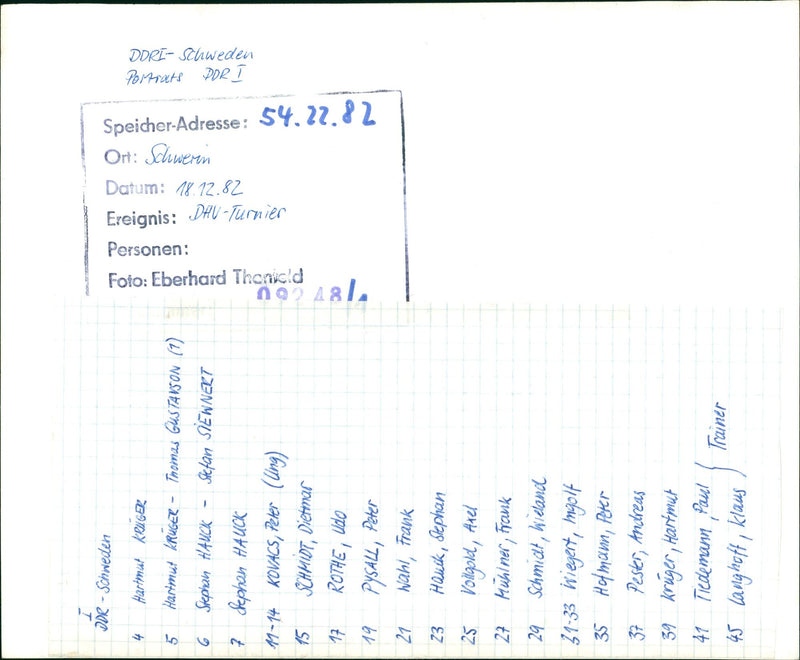 DDRI - Schweden
Portraits DDR I
Speicher-Adresse: 54.22.82
Ort: Schwerin
Datum: 18.12.82
Ereignis: DHV-Turnier
Personen:
Foto: Eberhard Thonfeld
09248/1
I
DDR - Schweden
4 Hartmut KRÜGER
5 Hartmut KRÜGER - Thomas GUSTAVSON (1)
6 Stephan HAUCK - Stefan SIEWNERT
7 Stephan HAUCK
11-14 KOVACS, Peter (Ung)
15 SCHMIDT, Dietmar
17 ROTHE, Udo
19 PYSALL, Peter
21 Wahl, Frank
23 Hauck, Stephan
25 Völtgold, Axel
27 Mühlner, Frank
29 Schmidt, Wieland
31-33 Wiegert, Ingolf
35 Hofmann, Peter
37 Pester, Andreas
39 Krüger, Hartmut
41 Tiedemann, Paul } Trainer
45 Langhoff, Klaus